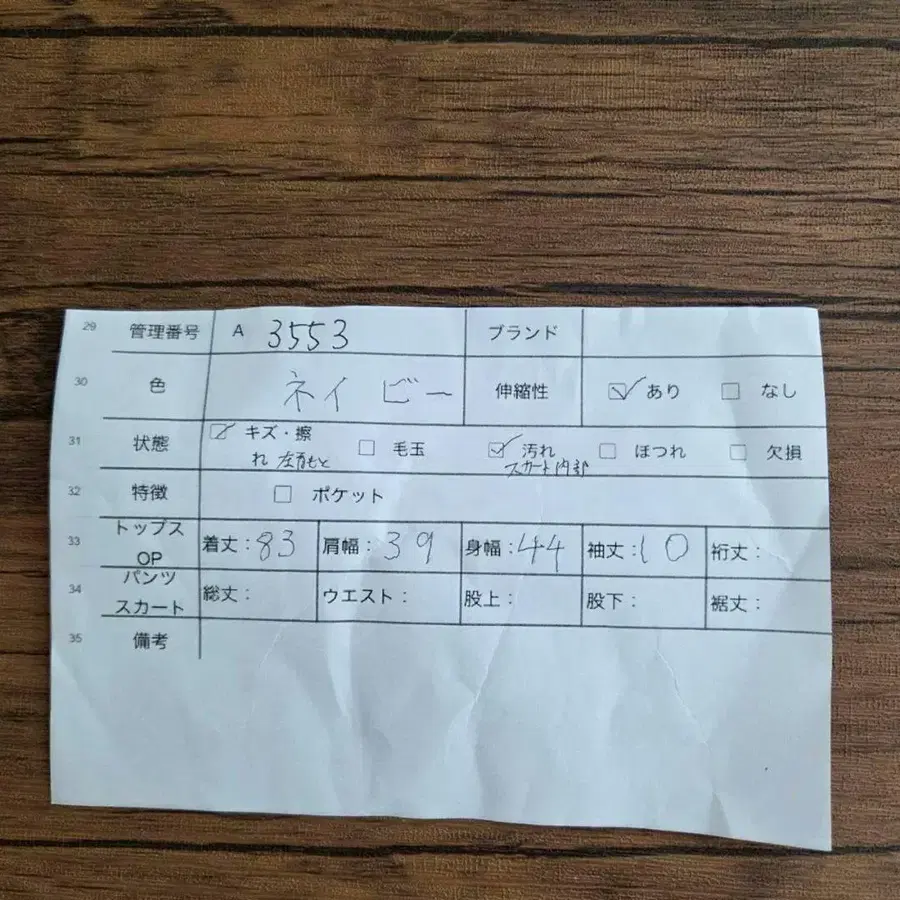 29 管理番号 A 3553 ブランド
30 色 ネイビー 伸縮性 ☑ あり ☐ なし
31 状態 ☑ キズ・擦れ 左肩もと ☐ 毛玉 ☑ 汚れ スカート内部 ☐ ほつれ ☐ 欠損
32 特徴 ☐ ポケット
33 トップス OP 着丈：83 肩幅：39 身幅：44 袖丈：10 裄丈：
34 パンツ スカート 総丈： ウエスト： 股上： 股下： 裾丈：
35 備考